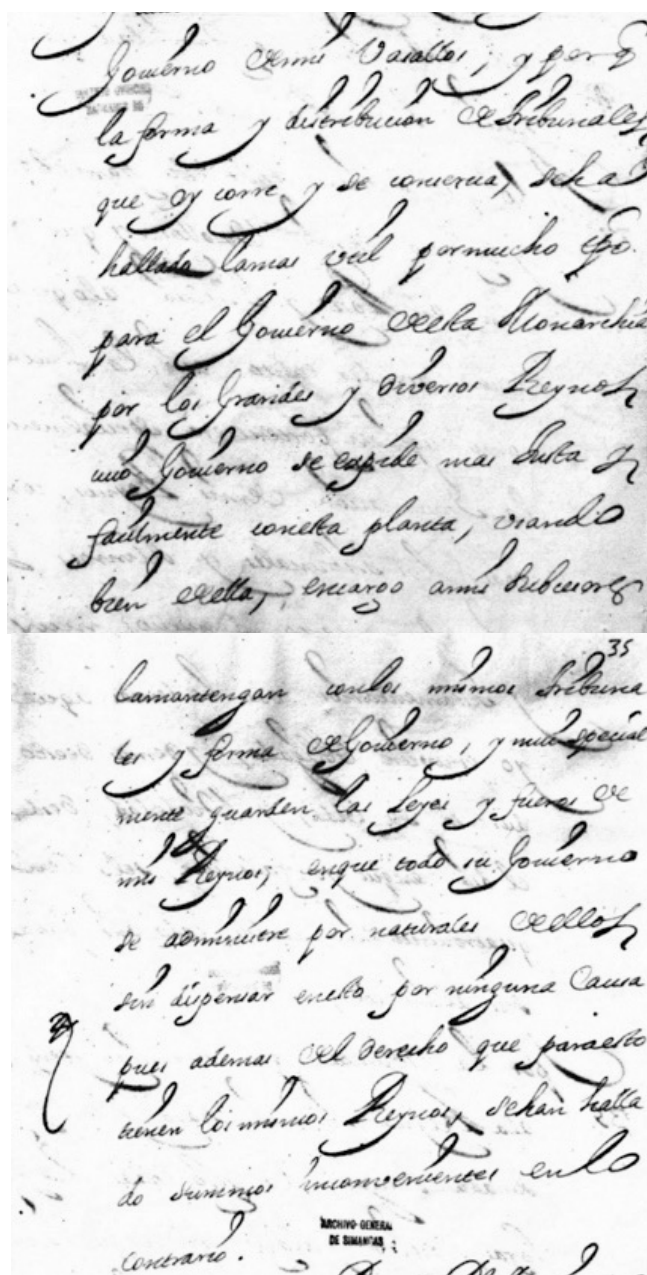 Govierno de mis Vasallos, y por q
la forma y distribucion de Tribunales
que oy corre y se conserua, se ha
hallado la mas vtil por mucho tpo.
para el Govierno de esta Monarchia
por los Grandes y diversos Reynos
cuio Govierno se expide mas Justa y
facilmente con esta planta, vsando
bien de ella, encargo a mis Subcesores
35
la mantengan con los mismos Tribuna
les y forma de Govierno, y mui special
mente guarden las Leyes y fueros de
mis Reynos, en que todo su Govierno
se administre por naturales de ellos
sin dispensar en esto por ninguna Causa
pues ademas del derecho que para esto
tienen los mismos Reynos, se han halla
do summos inconvenientes en lo
contrario.
ARCHIVO GENERAL
DE SIMANCAS